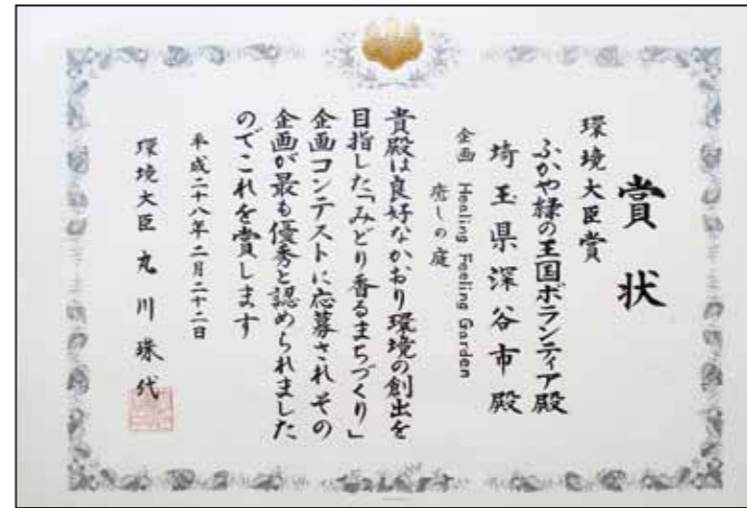 賞状
環境大臣賞
ふかや緑の王国ボランティア殿
埼玉県深谷市殿
企画 Healing Feeling Garden
癒しの庭
貴殿は良好なかおり環境の創出を
目指した「みどり香るまちづくり」
企画コンテストに応募されその
企画が最も優秀と認められました
のでこれを賞します
平成二十八年二月二十二日
環境大臣 丸川珠代